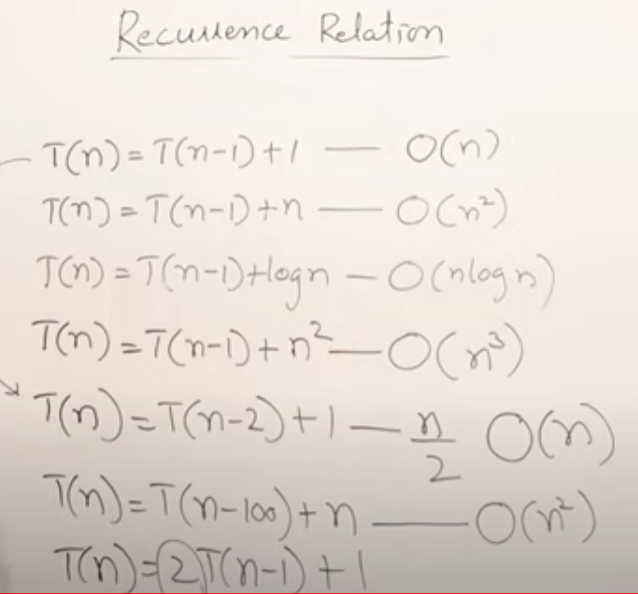 Recurrence Relation
T(n) = T(n-1) + 1 — O(n)
T(n) = T(n-1) + n — O(n²)
T(n) = T(n-1) + logn — O(nlogn)
T(n) = T(n-1) + n² — O(n³)
T(n) = T(n-2) + 1 — n/2 O(n)
T(n) = T(n-100) + n — O(n²)
T(n) = 2T(n-1) + 1